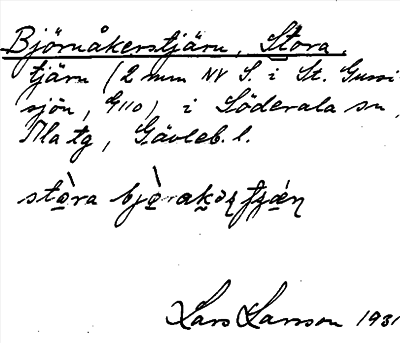 Björnåkerstjärn, Stora,
tjärn (2 mm NV S. i St. Gussi
sjön, G110) i Söderala sn,
Ala tg, Gävleb. l.
stò̩ra bjò̩rak
Lars Larsson 1931